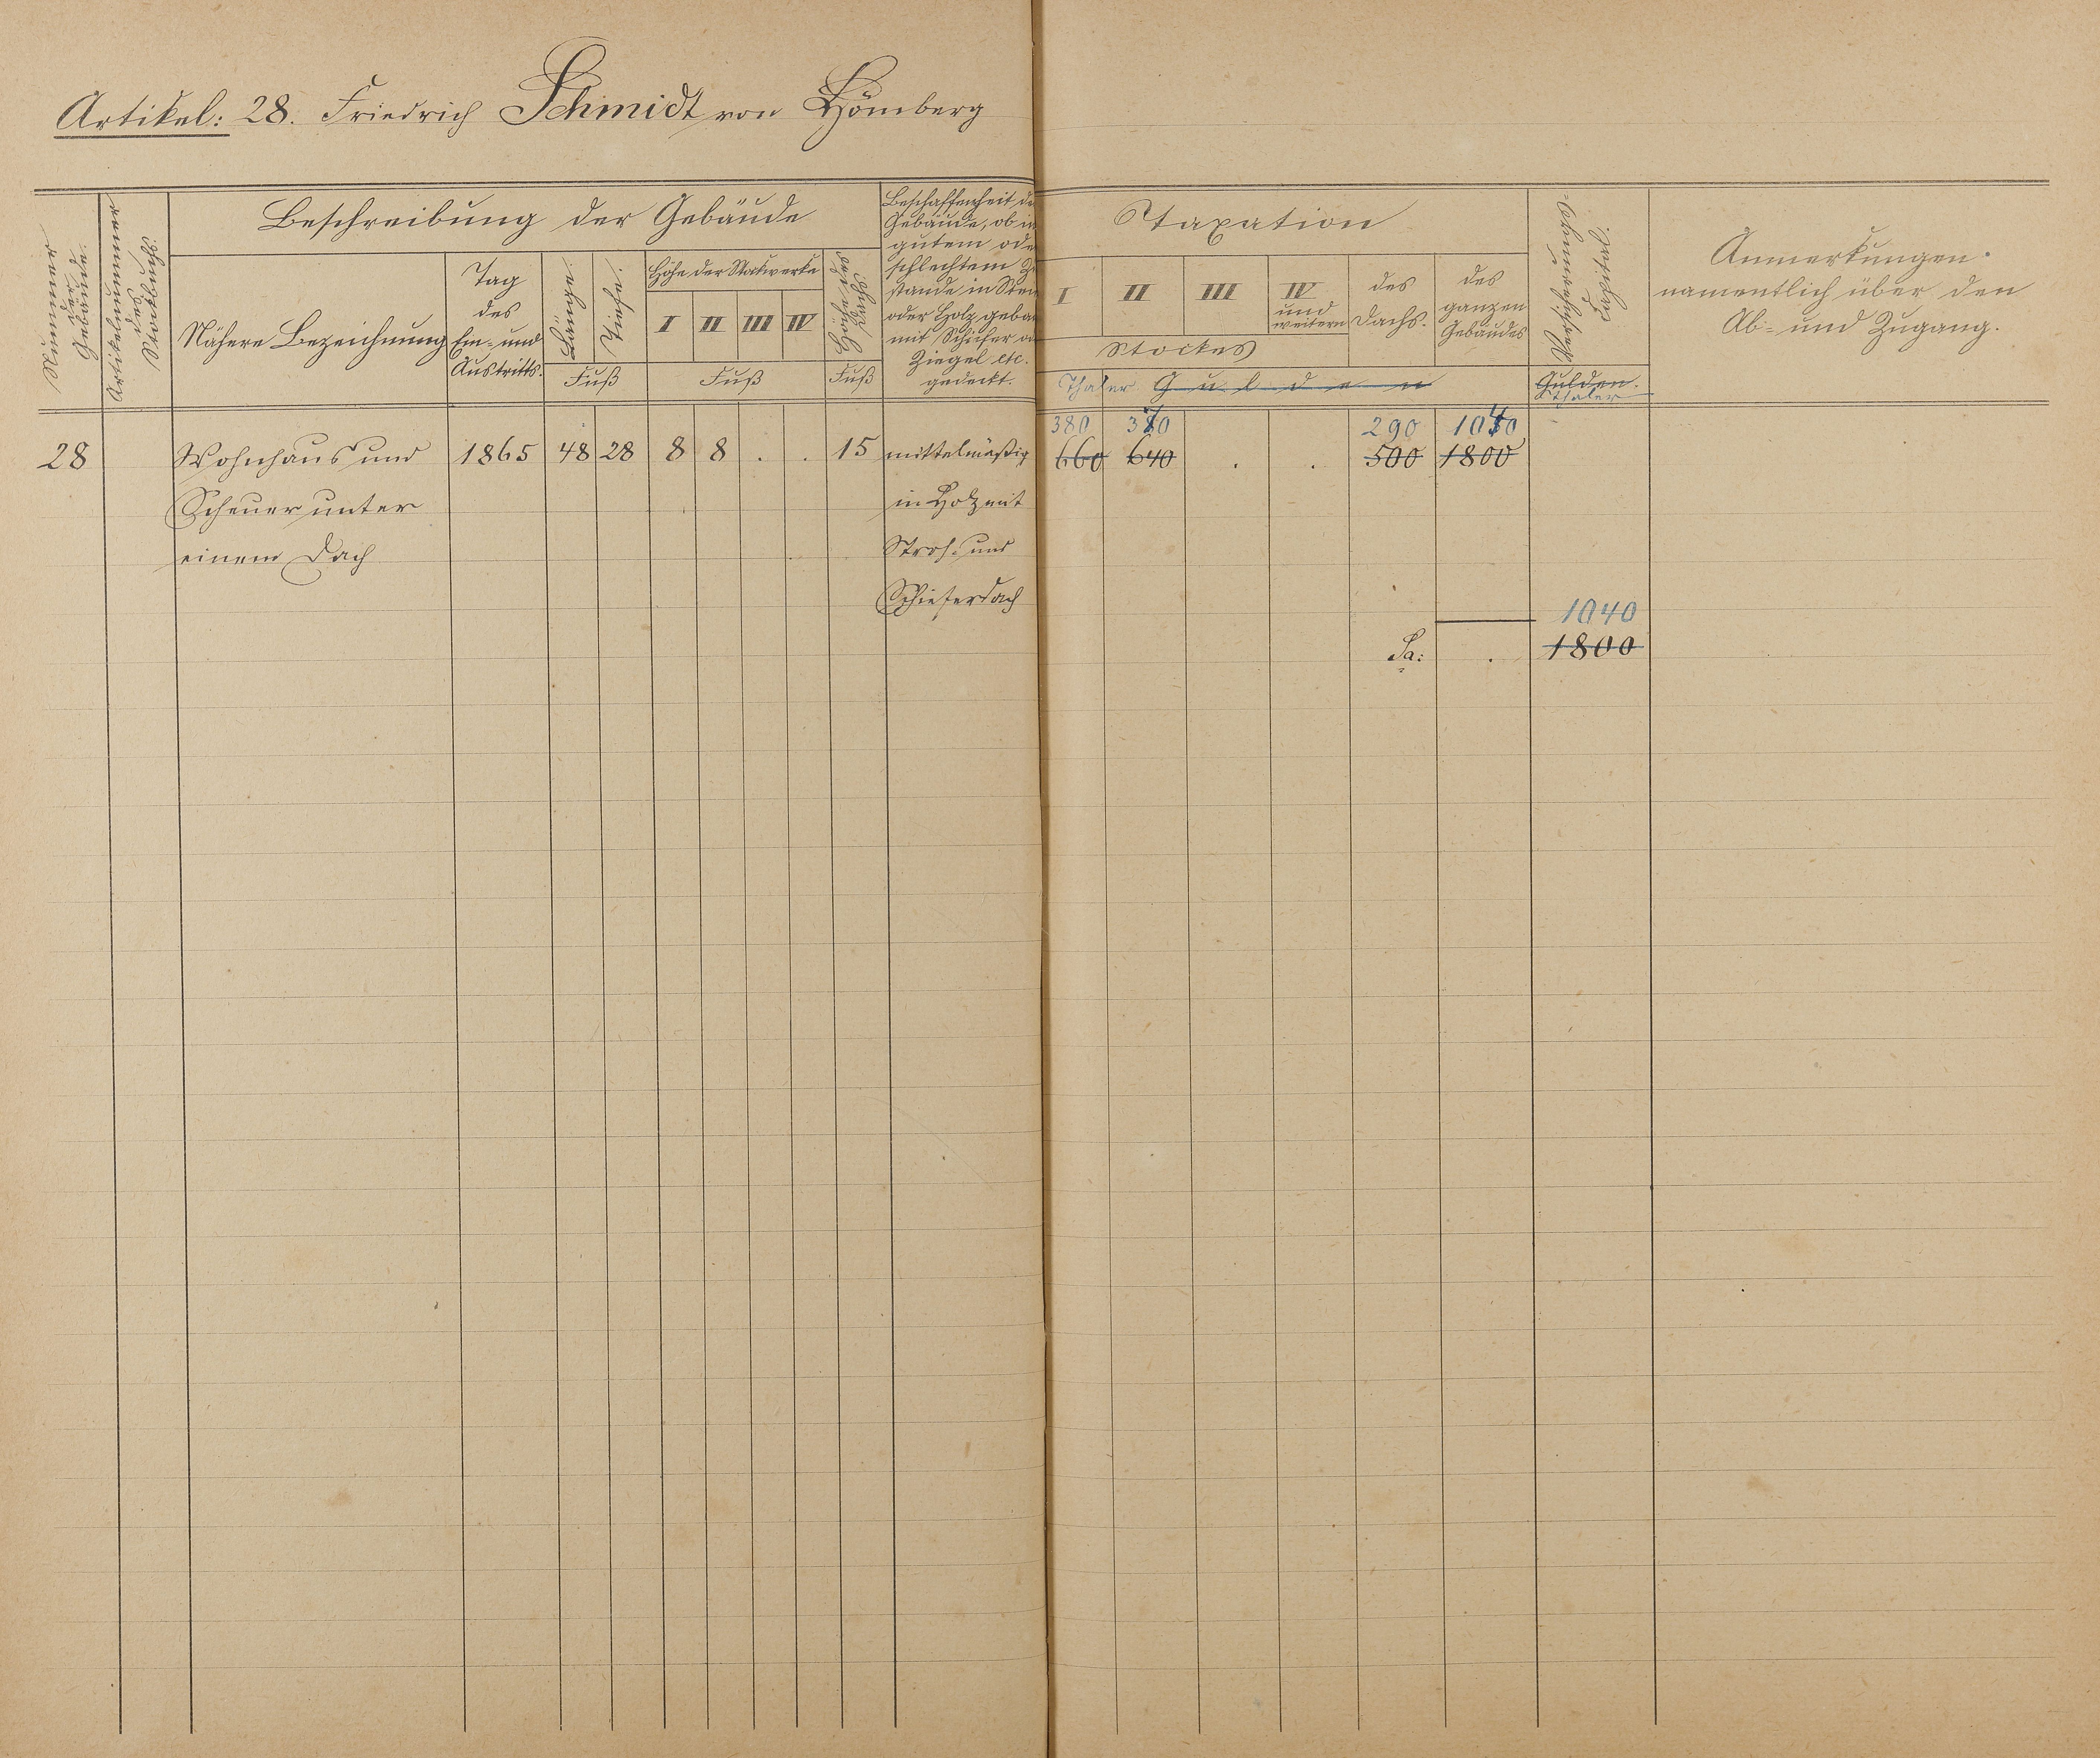 Artikel: 28. Friedrich Schmidt von Hömberg
Nummer
der
Gebäude.
Artikelnummer
des
Stockbuchs.
Beschreibung der Gebäude
Nähere Bezeichnung
Tag
des
Ein- und
Austritts.
Länge.
Tiefe.
Fuß
Höhe der Stockwerke
I II III IV
Fuß
Höhe des
Dachs
Fuß
Beschaffenheit de
Gebäude, ob in
gutem ode
schlechtem Z
stande in Stei
oder Holz geba
mit Schiefer o
Ziegel etc.
gedeckt.
Taxation
I II III IV
und
weitern
Stockes
des
Dachs.
des
ganzen
Gebäudes
Thaler Gulden
Versicherungs-
Capital.
Gulden.
Thaler
Anmerkungen.
namentlich über den
Ab- und Zugang.
380 370 290 1040
28 Wohnhaus und 1865 48 28 8 8 . . 15 mittelmäßig 660 640 . . 500 1800
Scheuer unter in Holz mit
einem Dach Stroh- und
Schieferdach
1040
Sa: . 1800